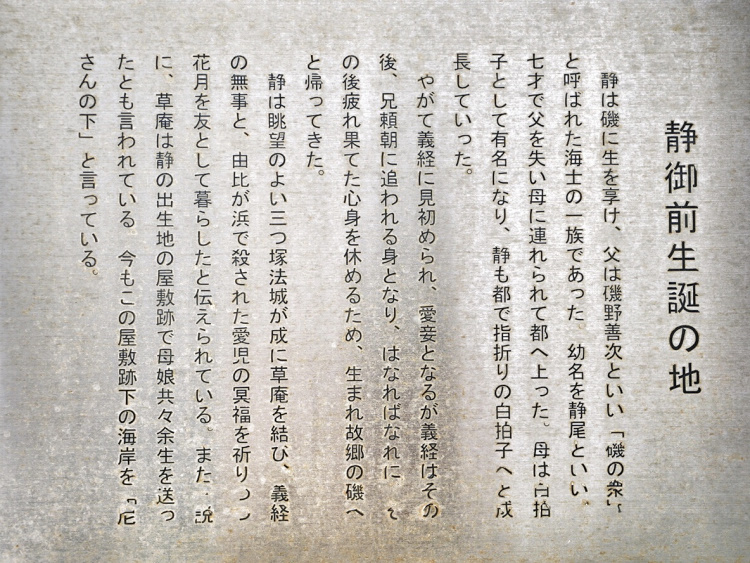 静御前生誕の地
静は磯に生を享け、父は磯野善次といい「磯の衆い
と呼ばれた海士の一族であった。幼名を静尾といい、
七才で父を失い母に連れられて都へ上った。母は白拍
子として有名になり、静も都で指折りの白拍子へと成
長していった。
やがて義経に見初められ、愛妾となるが義経はその
後、兄頼朝に追われる身となり、はなればなれに
の後疲れ果てた心身を休めるため、生まれ故郷の磯へ
と帰ってきた。
静は眺望のよい三つ塚法城が成に草庵を結び、義経
の無事と、由比が浜で殺された愛児の冥福を祈りつつ
花月を友として暮らしたと伝えられている。また一説
に、草庵は静の出生地の屋敷跡で母娘共々余生を送っ
たとも言われている。今もこの屋敷跡下の海岸を「尼
さんの下」と言っている。